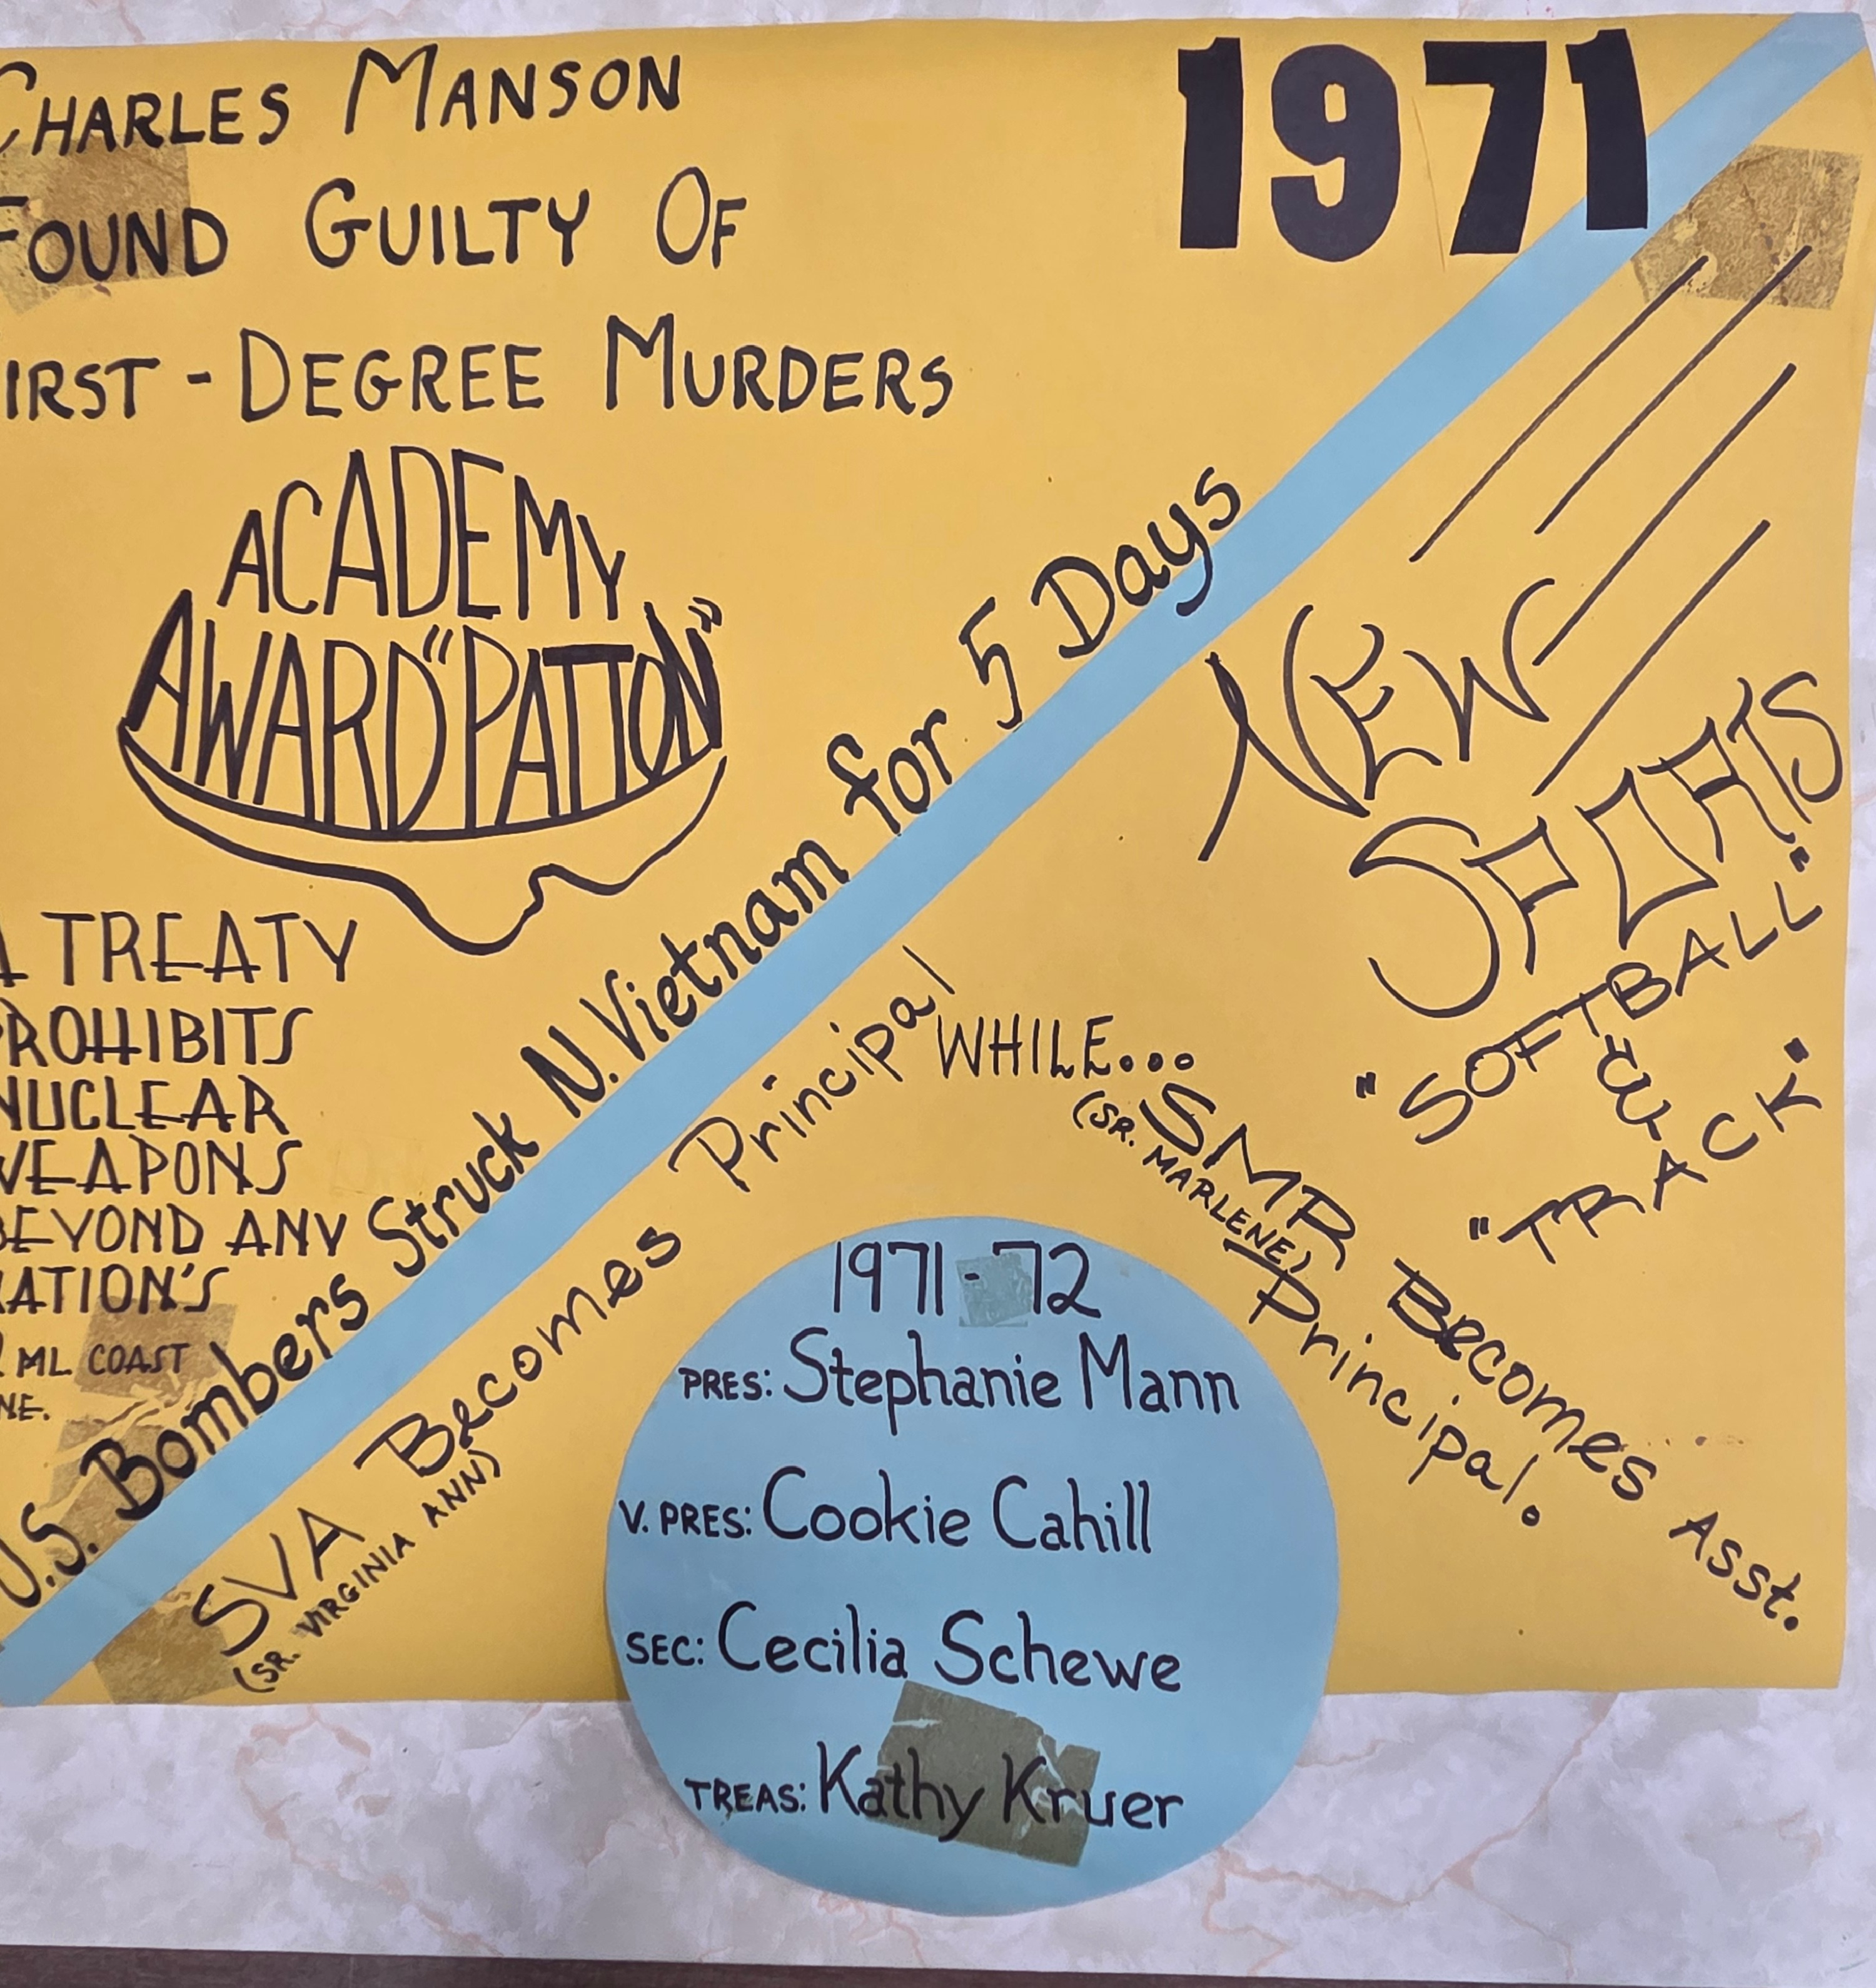 CHARLES MANSON
FOUND GUILTY OF
IRST-DEGREE MURDERS
1971
ACADEMY
AWARD "PATTON"
A TREATY
PROHIBITS
NUCLEAR
WEAPONS
BEYOND ANY
NATION'S
ML COAST
NE.
U.S. Bombers Struck N. Vietnam for 5 Days
NEW
SPORTS
"SOFTBALL"
&
"TRACK"
SVA Becomes Principal
(SR. VIRGINIA ANN)
WHILE...
SMR Becomes Asst.
(SR. MARLENE)
Principal.
1971-72
PRES: Stephanie Mann
V. PRES: Cookie Cahill
SEC: Cecilia Schewe
TREAS: Kathy Kruer